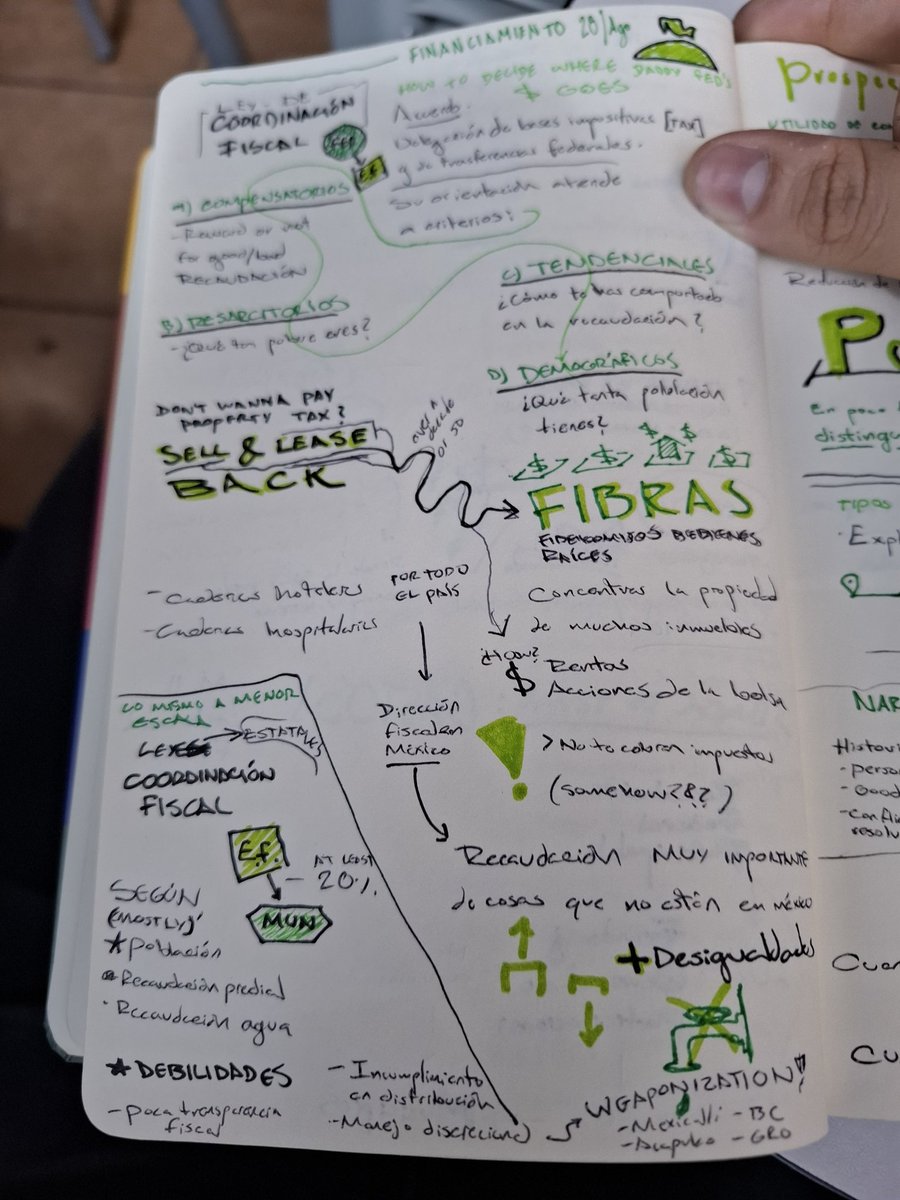 FINANCIAMIENTO 28/Ago
LEY DE
COORDINACIÓN
FISCAL
HOW TO DECIDE WHERE DADDY FED'S
$ GOES
Acuerdo
Delegación de bases impositivas [TAX]
y de trasferencias federales.
Su orientación atiende
a criterios:
E.F.
A) COMPENSATORIOS
- Reward or not
for good/bad
RECAUDACIÓN
B) RESARCITORIOS
- ¿Qué tan pobre eres?
C) TENDENCIALES
¿Cómo te has comportado
en la recaudación?
D) DEMOGRÁFICOS
¿Qué tanta población
tienes?
DON'T WANNA PAY
PROPERTY TAX?
SELL & LEASE
BACK
over a
decade
or so
$ $
$ $ $ $
FIBRAS
FIDEICOMISOS DE BIENES
RAÍCES
- Cadenas hoteleras
- Cadenas hospitalarias
POR TODO
EL PAÍS
Concentras la propiedad
de muchos inmuebles
¿How?
$ Rentas
Acciones de la bolsa
Dirección
fiscal en
México
! > No te cobran impuestos
(somehow?&?)
Recaudación MUY IMPORTANTE
de cosas que no están en méxico
+ Desigualdades
WEAPONIZATION!
- Mexicali - BC
- Acapulco - GRO
LO MISMO A MENOR
ESCALA
LEYES
ESTATALES
COORDINACIÓN
FISCAL
E.f.
- AT LEAST
20%
MUN
SEGÚN
(MOSTLY)
* Población
Recaudación predial
· Recaudación agua
* DEBILIDADES
- Poca transparencia
fiscal
- Incumplimiento
en distribución
- Manejo discrecional
Prospec
UTILIDAD DE
Reducción de
P
En poco
disting
TIPOS
· Expl
NAR
Histori
- perso
- Good
- Confli
resolu
Cuan
Cu